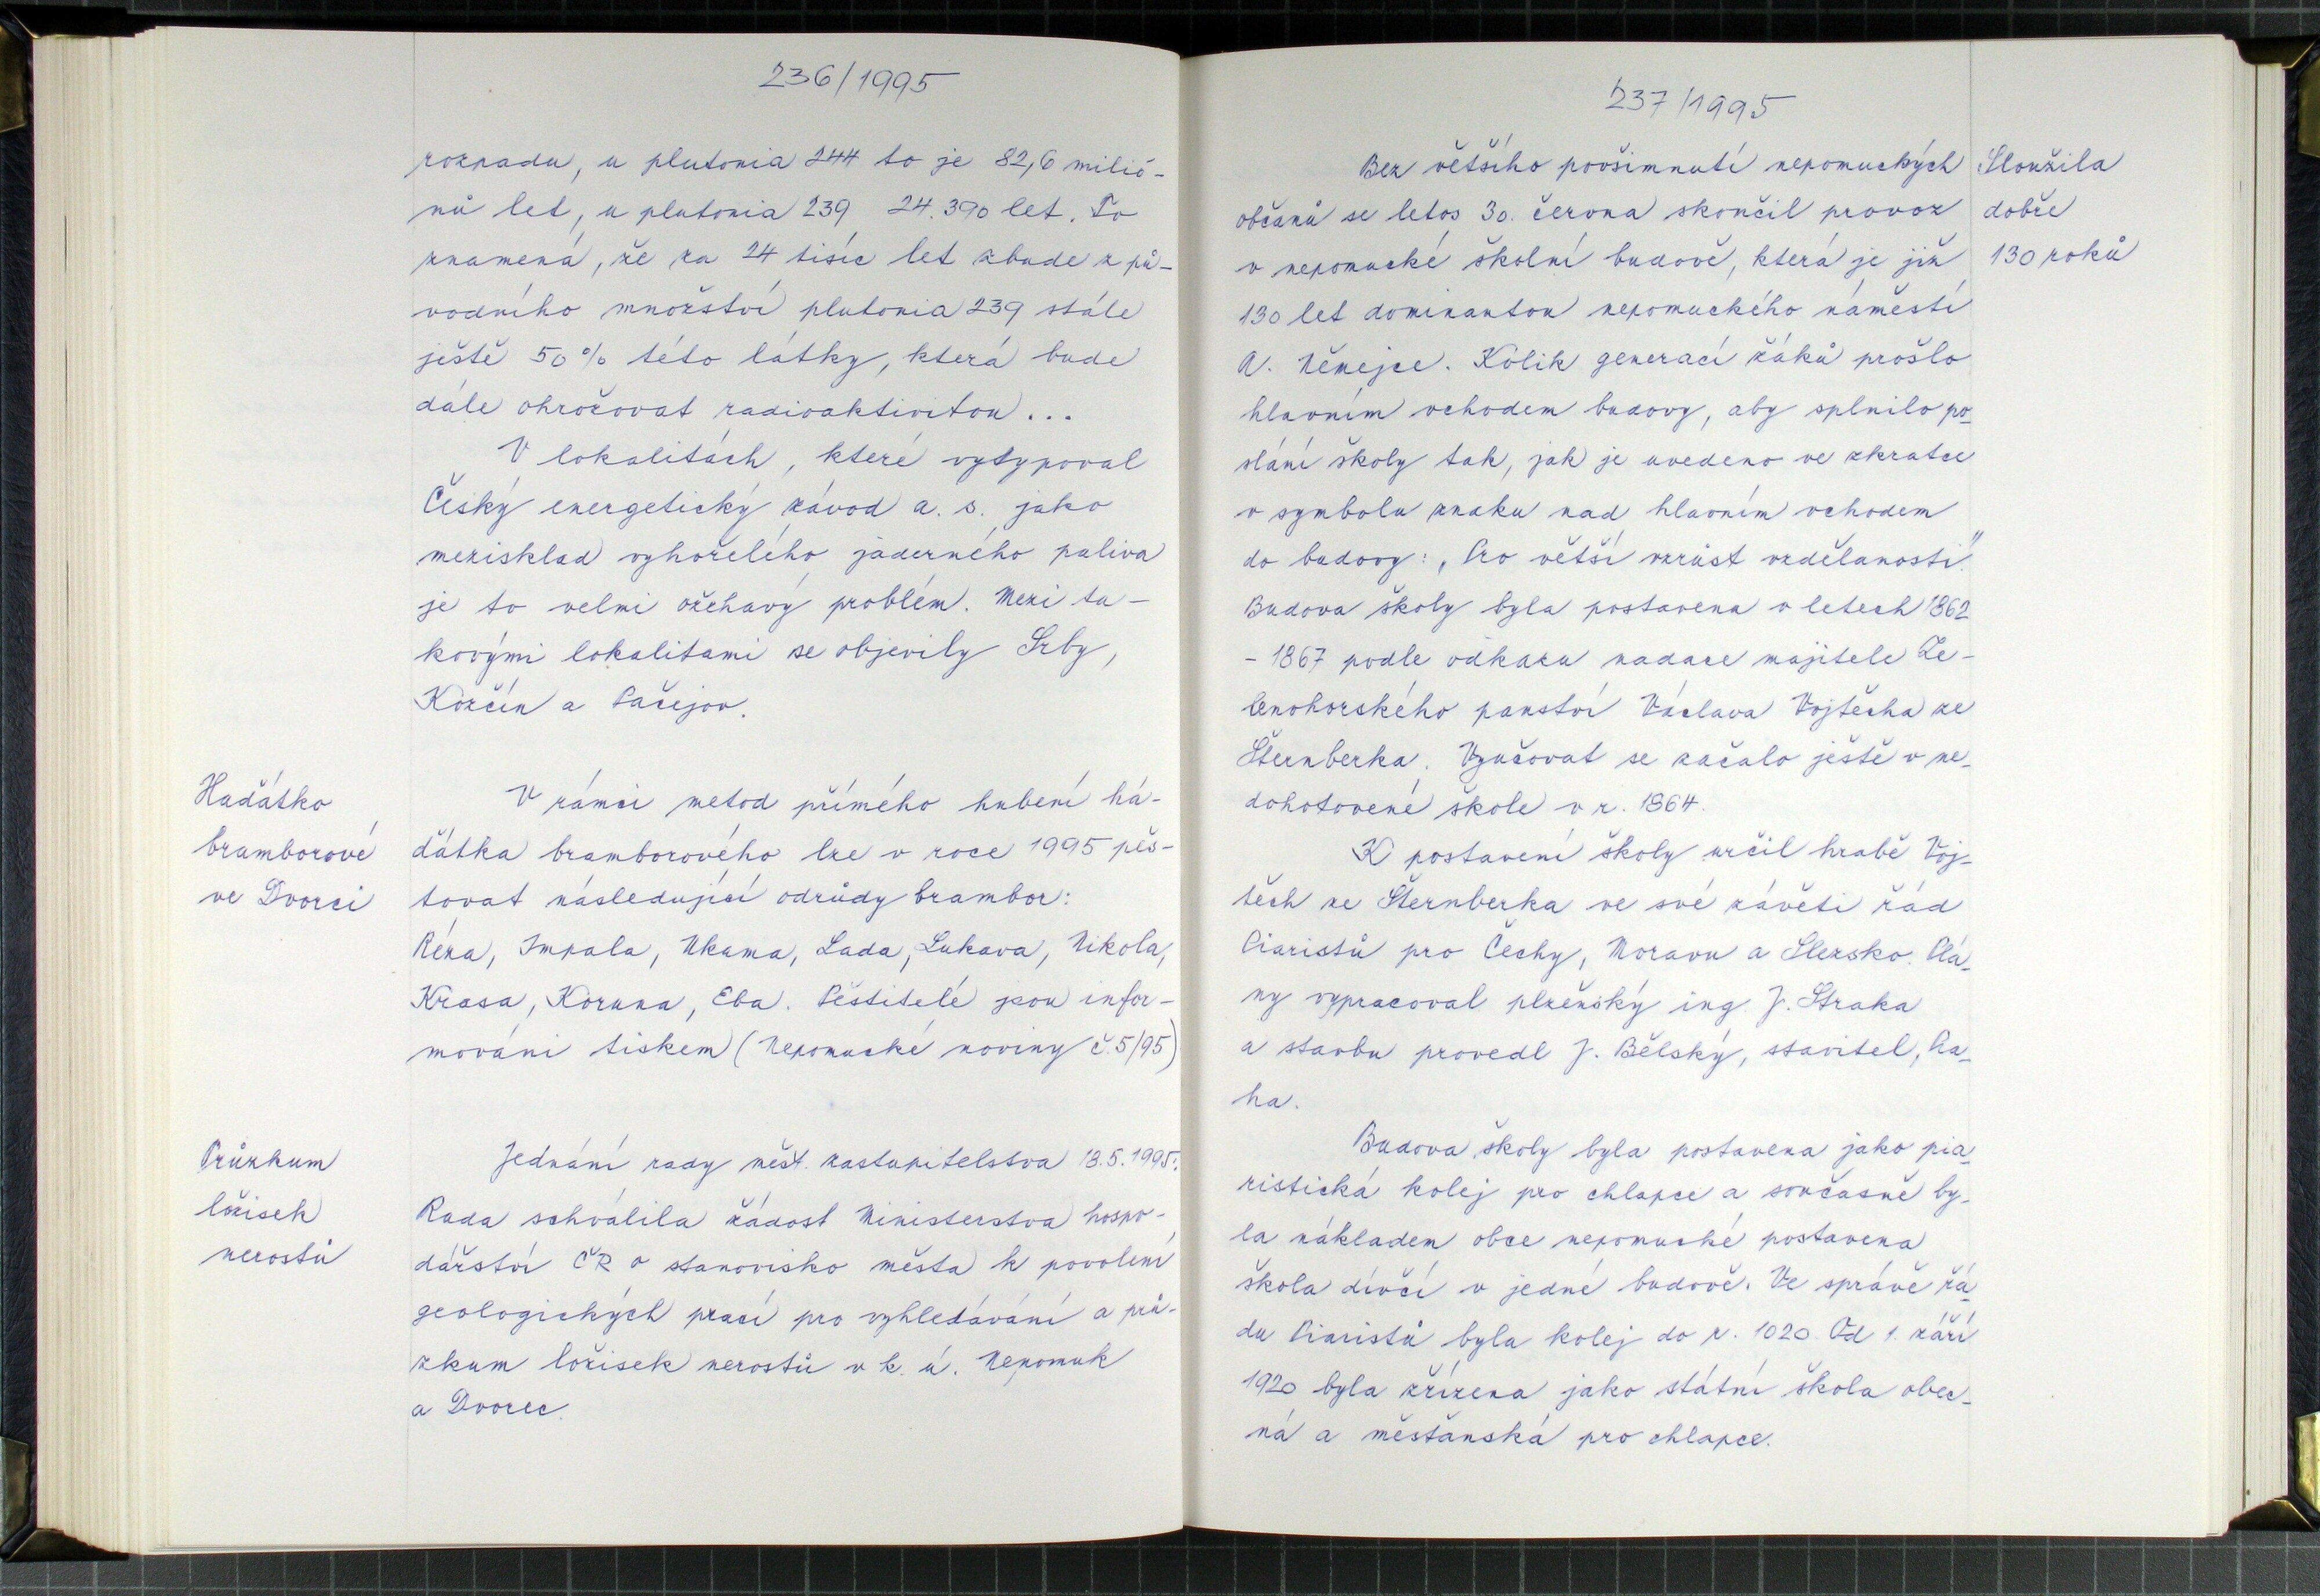 236/1995
rozpadu, u plutonia 244 to je 82,6 milió-
nů let, u plutonia 239 24.390 let. To
znamená, že za 24 tisíc let zbude z pů-
vodního množství plutonia 239 stále
ještě 50% této látky, která bude
dále ohrožovat radioaktivitou...
V lokalitách, které vytypoval
Český energetický závod a. s. jako
mezisklad vyhořelého jaderného paliva
je to velmi ožehavý problém. Mezi ta-
kovými lokalitami se objevily Srby,
Kozčín a Pačejov.
Haďátko
bramborové
ve Dvorci
V rámci metod přímého hubení há-
ďátka bramborového lze v roce 1995 pěs-
tovat následující odrůdy brambor:
Réna, Impala, Ukama, Lada, Lukava, Nikola,
Krasa, Koruna, Eba. Pěstitelé jsou infor-
mováni tiskem (Nepomucké noviny č.5/95)
Průzkum
ložisek
nerostů
Jednání rady měst. zastupitelstva 18.5.1995:
Rada schválila žádost Ministerstva hospo-
dářství ČR o stanovisko města k povolení
geologických prací pro vyhledávání a prů-
zkum ložisek nerostů v k. ú. Nepomuk
a Dvorec.
237/1995
Bez většího povšimnutí nepomuckých
občanů se letos 30. června skončil provoz
v nepomucké školní budově, která je již
130 let dominantou nepomuckého náměstí
A. Němejce. Kolik generací žáků prošlo
hlavním vchodem budovy, aby splnilo po-
slání školy tak, jak je uvedeno ve zkratce
v symbolu znaku nad hlavním vchodem
do budovy: „Pro větší vzrůst vzdělanosti."
Budova školy byla postavena v letech 1862
- 1867 podle odkazu nadace majitele Ze-
lenohorského panství Václava Vojtěcha ze
Šternberka. Vyučovat se začalo ještě v ne-
dohotovené škole v r. 1864.
K postavení školy určil hrabě Voj-
těch ze Šternberka ve své závěti řád
Piaristů pro Čechy, Moravu a Slezsko. Plá-
ny vypracoval plzeňský ing. J. Straka
a stavbu provedl J. Bělský, stavitel, Pra-
ha.
Budova školy byla postavena jako pia-
ristická kolej pro chlapce a současně by-
la nákladem obce nepomucké postavena
škola dívčí v jedné budově. Ve správě řá-
du Piaristů byla kolej do r. 1020. Od 1. září
1920 byla zřízena jako státní škola obec-
ná a měšťanská pro chlapce.
Sloužila
dobře
130 roků